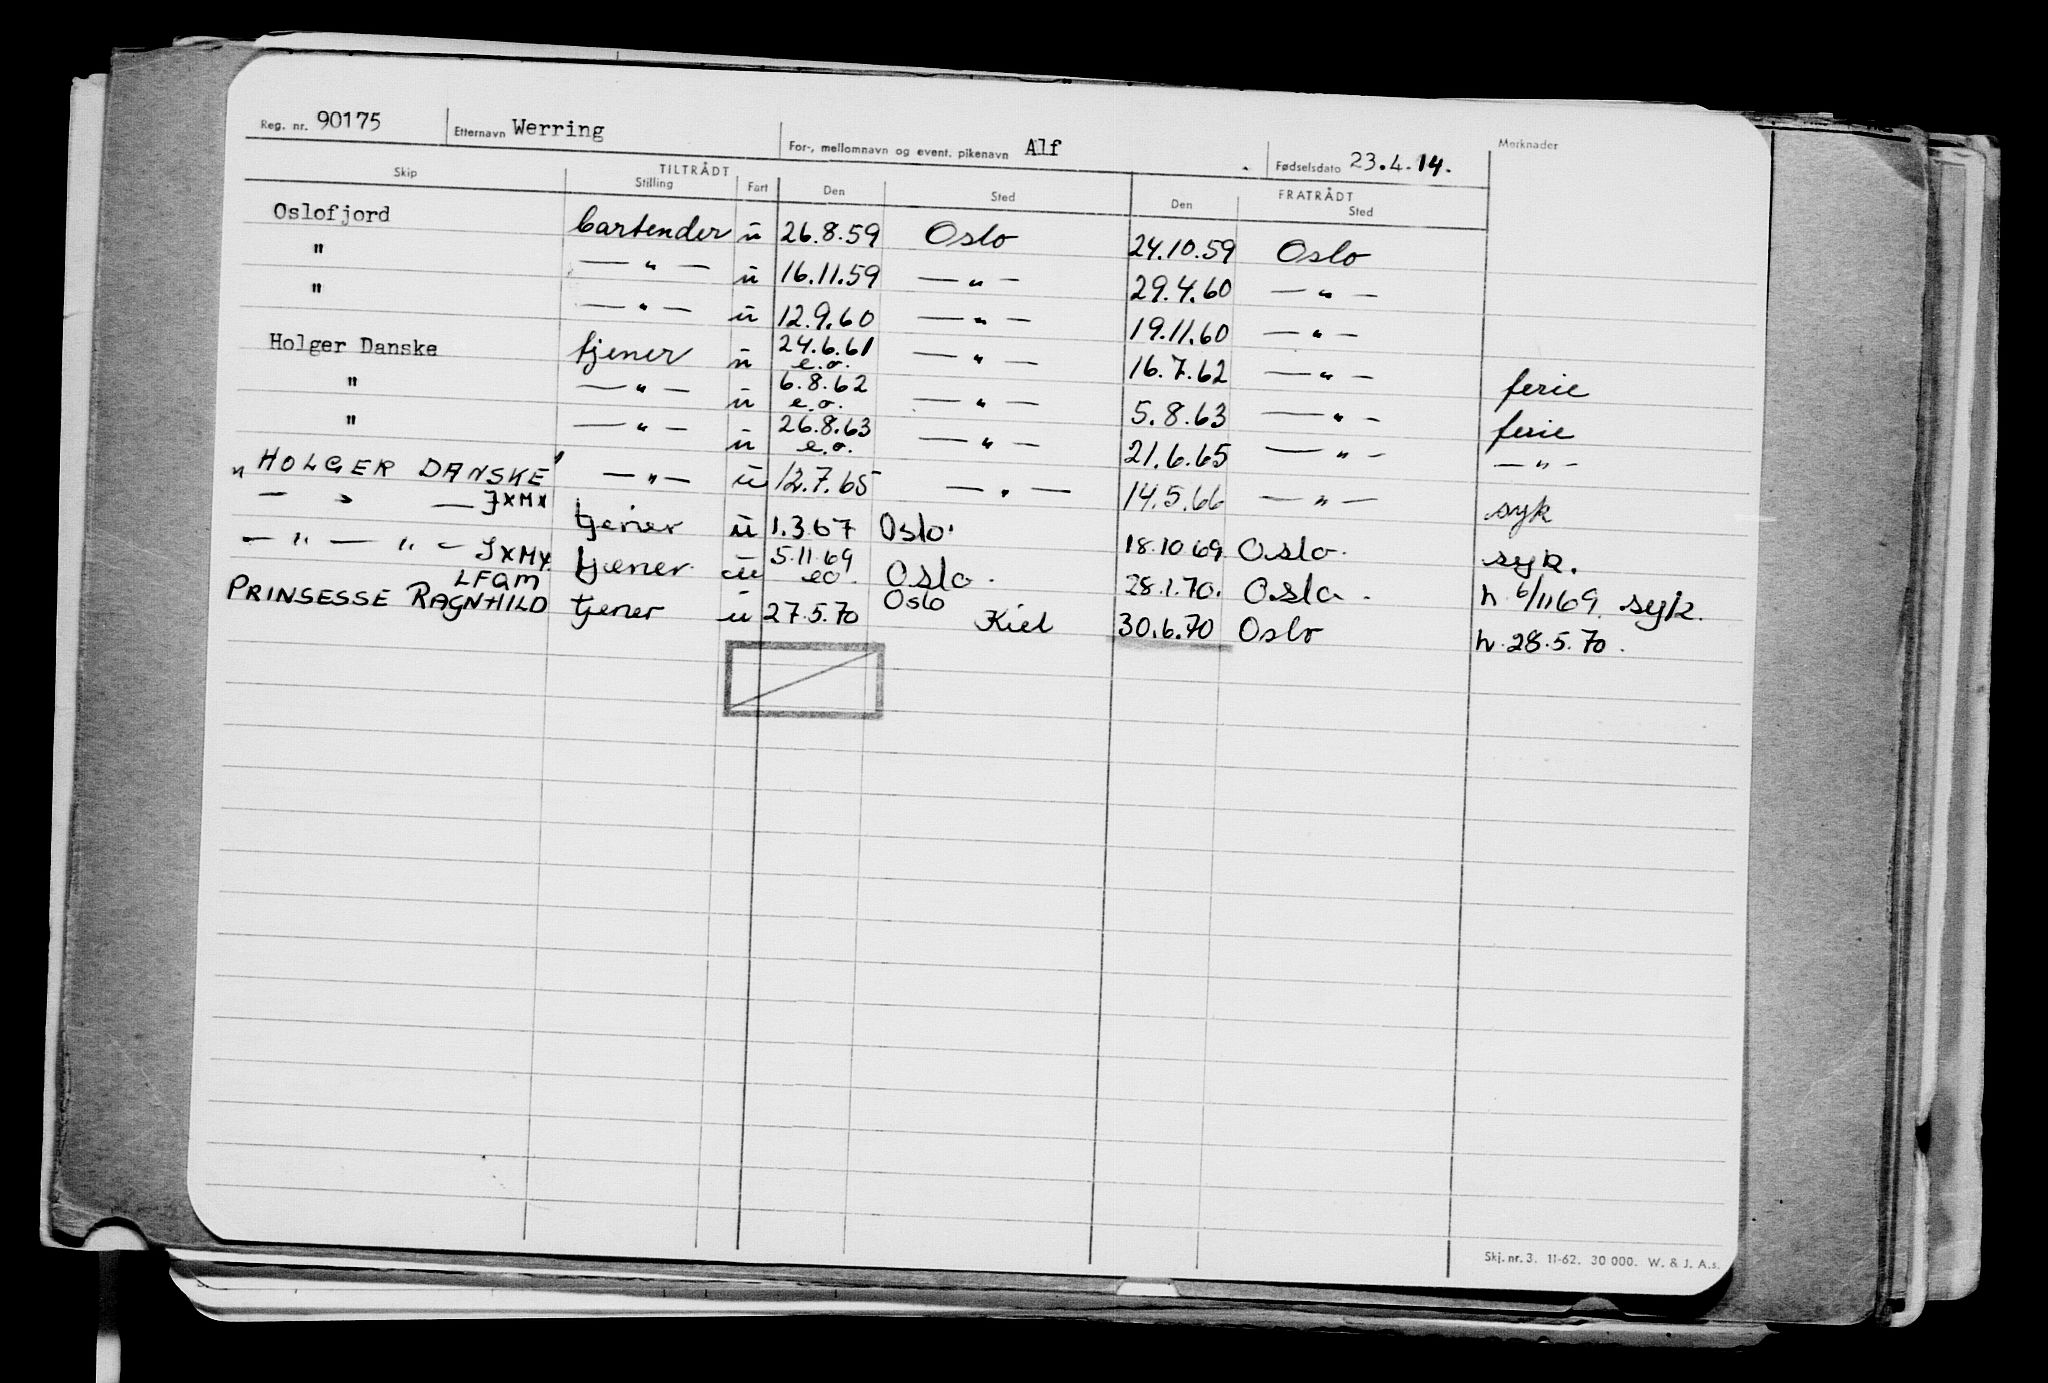 Reg. nr. 90175 Etternavn Werring For-, mellomnavn og event. pikenavn Alf Fødselsdato 23.4.14. Merknader
TILTRÅDT FRATRÅDT
Skip Stilling Fart Den Sted Den Sted
Oslofjord bartender u 26.8.59 Oslo 24.10.59 Oslo
" — " — u 16.11.59 — " — 29.4.60 — " —
" — " — u 12.9.60 — " — 19.11.60 — " —
Holger Danske tjener u 24.6.61 e.o. — " — 16.7.62 — " — ferie
" — " — u 6.8.62 e.o. — " — 5.8.63 — " — ferie
" — " — u 26.8.63 e.o. — " — 21.6.65 — " — — " —
"HOLGER DANSKE" — " — u 12.7.65 — " — 14.5.66 — " — syk
— " — JXMX tjener u 1.3.67 Oslo. 18.10.69 Oslo. syk.
— " — " — JXMX tjener u 5.11.69 eo. Oslo. 28.1.70. Oslo. h 6/11 69. syk.
LFQM
PRINSESSE RAGNHILD tjener u 27.5.70 Oslo Kiel 30.6.70 Oslo h. 28.5.70.
Skj. nr. 3. 11-62. 30 000. W. & J. A.s.